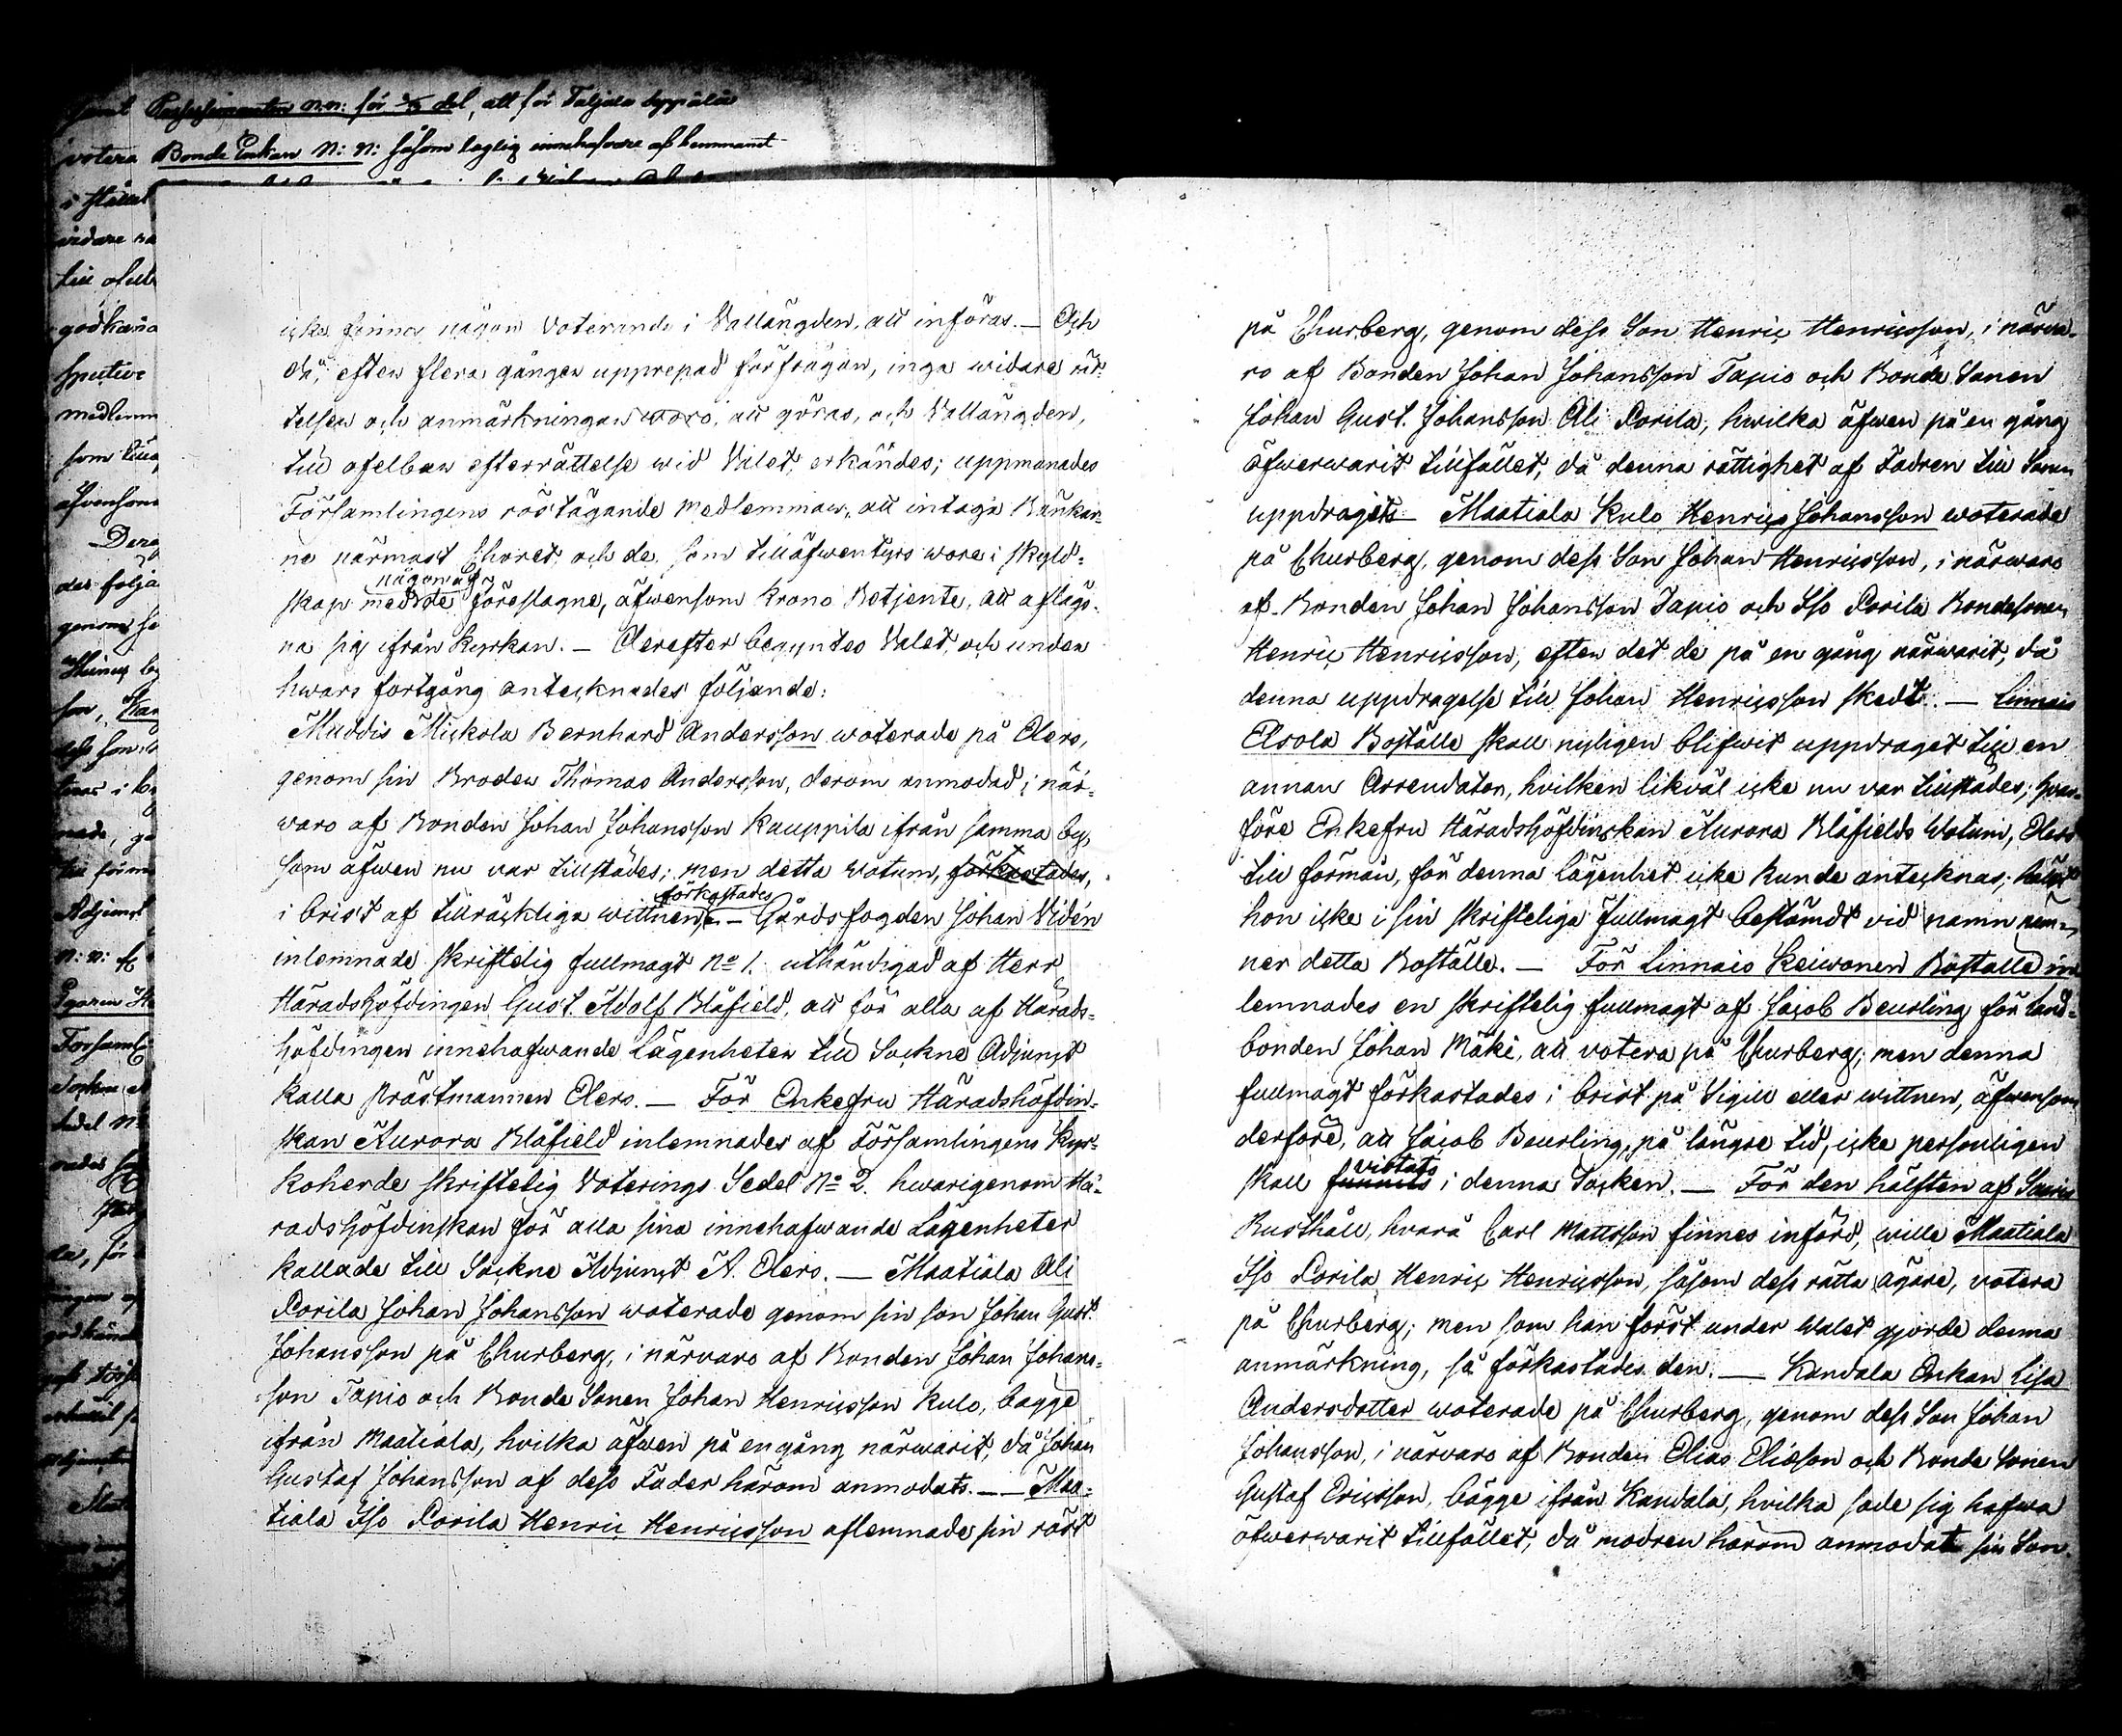 samt Possessionaten n.n: för 2/3 del, att för Taljala
votera Bonde Enkan N: N: såsom laglig innehafvare af hemmanet
i stället
widare
till
godkänd
som
äfvensom
Dera
des följa
genom
Adjunct
N: n:
Egaren
Församl
icke finnes någon Voterande i Vallängden, att införas. — Och
då, efter flera gånger upprepad förfrågan, inga widare rät-
telser och anmärkningar woro, att göras, och Vallängden,
till ofelbar efterrättelse wid Valet, erkändes; uppmanades
Församlingens röstägande medlemmar, att intaga Bänkar-
na närmast Choret, och de, som tilläfwentyrs wore i skyld-
någon af
skap med de föreslagne, äfwensom Krono Betjente, att aflägs-
na sig ifrån kyrkan. — Derefter begyntes Valet, och under
hwars fortgång antecknades följande:
Muddis Mickola Bernhard Andersson woterade på Elers,
genom sin Broder Thomas Andersson, derom anmodad i när-
waro af Bonden Johan Johansson Kauppila ifrån samma by,
som äfwen nu var tillstädes; men detta Wotum, förkastades,
förkastades
i brist af tillräckliga wittnen. — Gårdsfogden Johan Widén
inlemnade skriftelig fullmagt No 1. uthändigad af Herr
Häradshöfdingen Gust. Adolf Blåfield, att för alla af Härads-
höfdingen innehafwande Lägenheter till Sockne Adjunct
kalla Prästmannen Elers. — För Enkefru Häradshöfdin-
skan Aurora Blåfield inlemnades af Församlingens Kyr-
koherde skriftelig Voterings Sedel No 2. hwarigenom Hä-
radshöfdinskan för alla sina innehafwande Lägenheter
kallade till Sockne Adjunct A. Elers. — Maatiala Ali
Dorila Johan Johansson woterade genom sin son Johan Gust.
Johansson på Churberg, i närvaro af Bonden Johan Johans-
son Tapio och Bonde Sonen Johan Henricsson Kulo, bägge
ifrån Maatiala, hvilka äfwen på en gång närwarit, då Johan
Gustaf Johansson af dess Fader härom anmodats. — Maa-
tiala Iso Dorila Henric Henricsson aflemnade sin röst
på Churberg, genom dess Son Henric Henricsson, i närwa-
ro af Bonden Johan Johansson Tapio och Bonde Sonen
Johan Gust. Johansson Ali Dorila, hwilka äfwen på en gång
öfwerwarit tillfället, då denna rättighet af Fadren till Sonen
uppdragits. Maatiala Kulo Henric Johansson woterade
på Churberg, genom dess Son Johan Henricsson, i närwaro
af Bonden Johan Johansson Tapio och Iso Dorila Bondesonen
Henric Henricsson, efter det de på en gång närwarit, då
denna uppdragelse till Johan Henricsson skedt. — Linnais
Elsola Boställe skall nyligen blifwit uppdraget till en
annan Arrendator, hvilken likväl icke nu var tillstädes; hvar-
före Enkefru Häradshöfdinskan Aurora Blåfields Wotum, Elers
till förmån, för denna Lägenhet icke kunde antecknas; helst
hon icke i sin skrifteliga fullmagt bestämdt vid namn näm-
ner detta Boställe. — För Linnais Keiwonen Boställe in
lemnades en skriftelig fullmagt af Jacob Beurling för Land-
bonden Johan Mäki, att votera på Churberg; men denna
fullmagt förkastades i brist på Sigill eller wittnen, äfwensom
derföre, att Jacob Beurling, på längre tid, icke personligen
vistats
skall funnits i denna Socken. — För den hälften af
Rusthåll, hvarå Carl Mattsson finnes införd, wille Maatiala
Iso Dorila Henric Henricsson, såsom dess rätta ägare, votera
på Churberg; men som han först under Walet gjorde denna
anmärkning, så förkastades den. — Kandala Enkan Lisa
Andersdotter woterade på Churberg, genom dess Son Johan
Johansson, i närvaro af Bonden Elias Eliasson och Bonde Sonen
Gustaf Ericsson, bägge ifrån Kandala, hvilka sade sig hafwa
öfwerwarit tillfället, då modren härom anmodat sin Son.